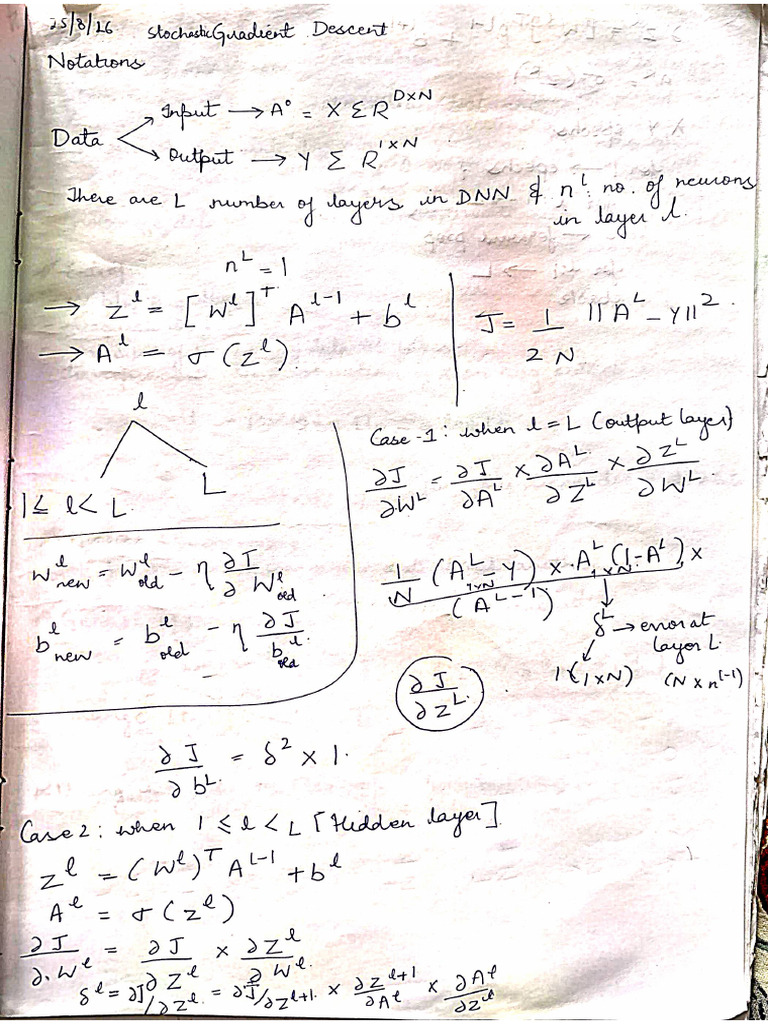 25/8/26 Stochastic Gradient Descent
Notations
Data Input → A⁰ = X Σ R^{D×N}
Output → Y Σ R^{1×N}
There are L number of layers in DNN & n^L: no. of neurons
in layer l.
n^L = 1
→ Z^l = [W^l]^T A^{l-1} + b^l
→ A^l = σ(Z^l).
J = 1/2N ||A^L - Y||^2.
l
1 ≤ l < L L
W^l_new = W^l_old - η ∂J/∂W^l_old
b^l_new = b^l_old - η ∂J/b^l_old
Case-1: when l = L (output layer)
∂J/∂W^L = ∂J/∂A^L × ∂A^L/∂Z^L × ∂Z^L/∂W^L
1/N (A^L - Y)_{1×N} × A^L(1-A^L)_{1×N} ×
(A^{L-1})
δ^L → error at
layer L.
1(1×N) (N×n^{l-1})
∂J/∂Z^L.
∂J/∂b^L = δ^2 × 1.
Case 2: when 1 ≤ l < L [Hidden layer]
Z^l = (W^l)^T A^{L-1} + b^l
A^l = σ(Z^l)
∂J/∂W^l = ∂J/∂Z^l × ∂Z^l/∂W^l.
δ^l = ∂J/∂Z^l = ∂J/∂Z^{l+1} × ∂Z^{l+1}/∂A^l × ∂A^l/∂Z^l